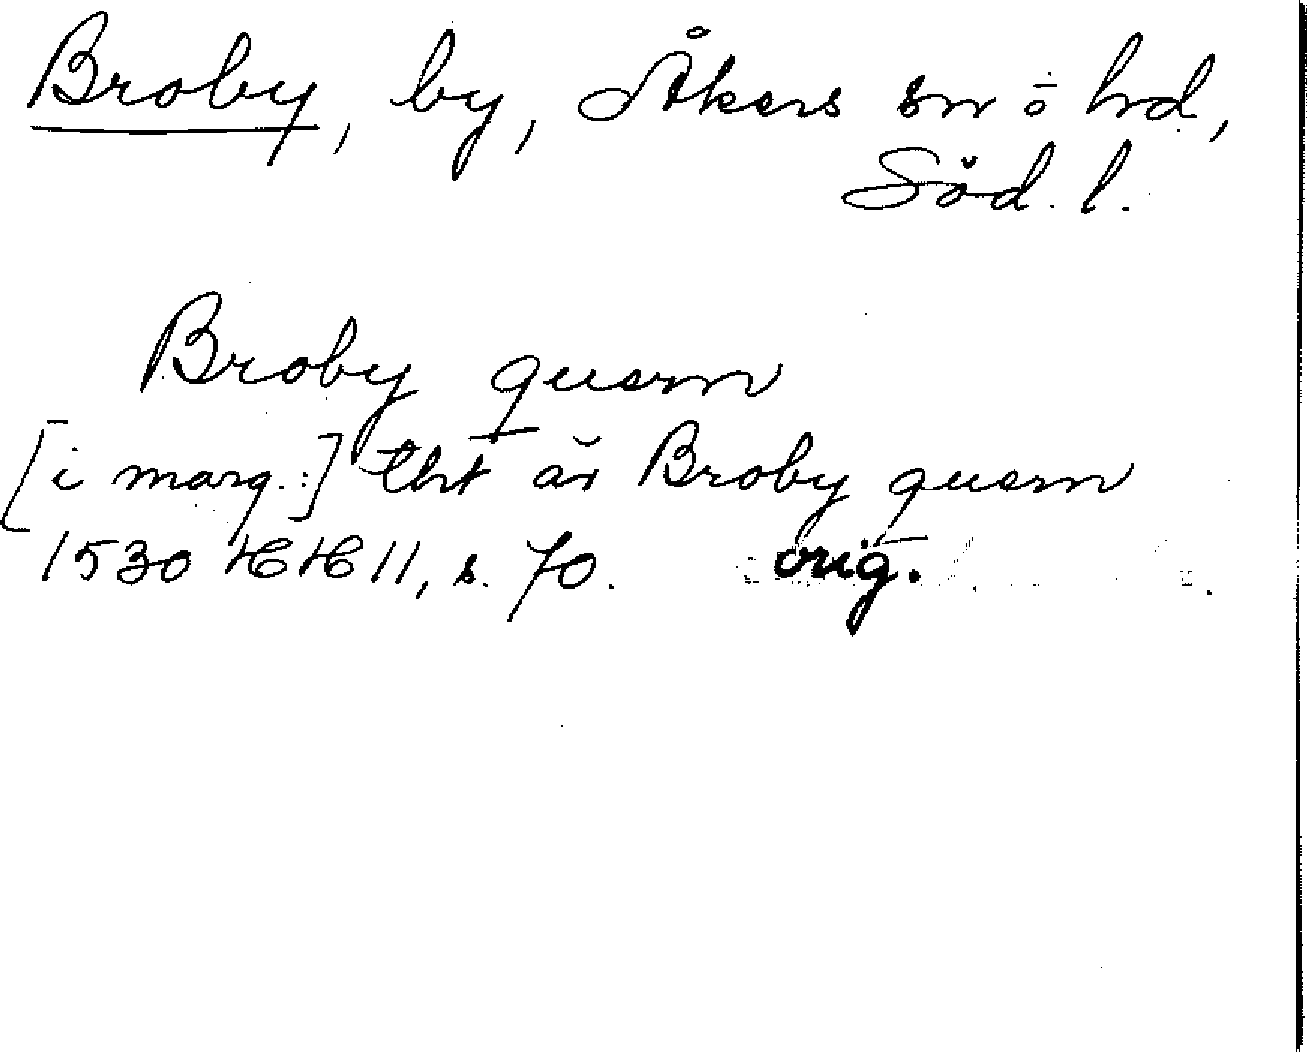 Broby, by, Åkers sn o hd,
Söd. l.
Broby quern
[i marg.:] tht är Broby quern
1530 HH 11, s. 70. orig.